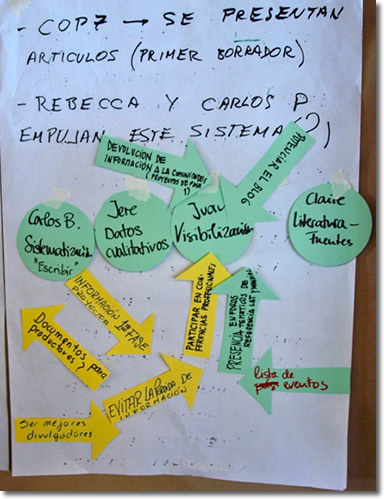 - COP7 → SE PRESENTAN
ARTICULOS (PRIMER BORRADOR)
- REBECCA Y CARLOS P
EMPUJAN ESTE SISTEMA (?)
DEVOLUCIÓN DE
INFORMACIÓN A LA COMUNIDADES
(PROYECTOS DE FASE
1)
POTENCIAR EL BLOG
Carlos B.
Sistematización
"Escribir"
Jere
Datos
Cualitativos
Juan
Visibilización
Claire
Literatura-
Fuentes
INFORMACIÓN 1a FASE
PROYECTOS
Documentos para
productores?
PARTICIPAR EN CON-
FERENCIAS PROFESIONALES
PRESENCIA EN FOROS
TEMÁTICOS DE
REFERENCIA
lista de
eventos
EVITAR LA PÉRDIDA DE
INFORMACIÓN
Ser mejores
divulgadores